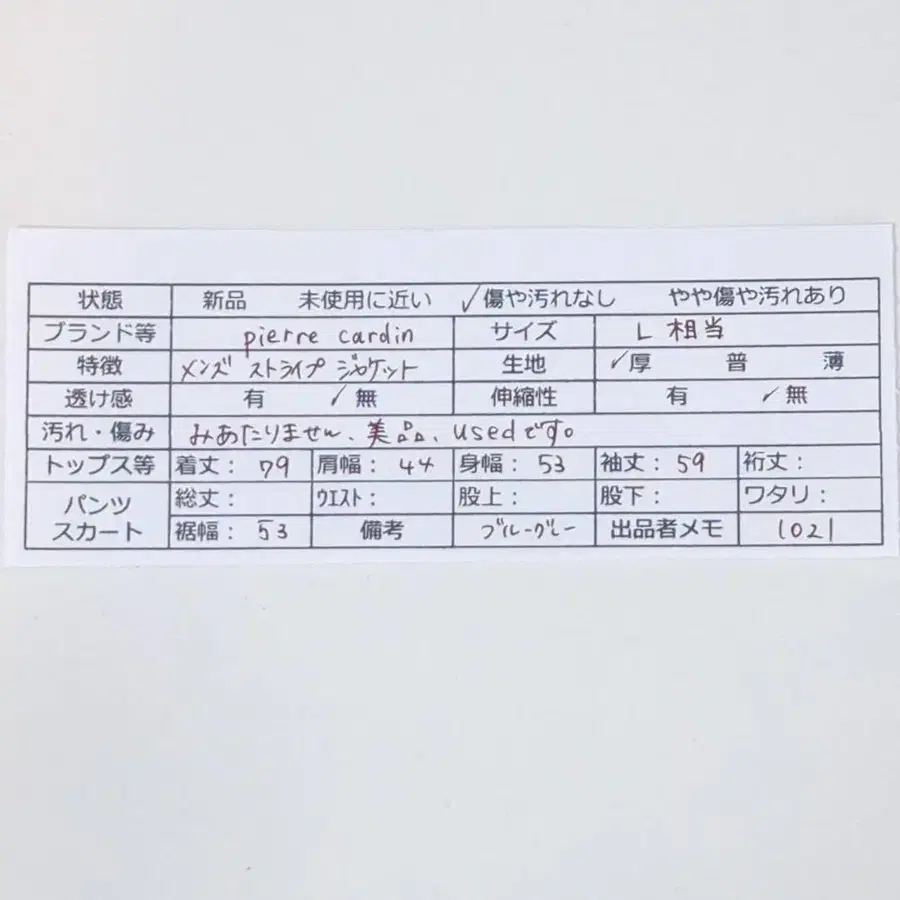 状態 新品 未使用に近い ✓傷や汚れなし やや傷や汚れあり
ブランド等 pierre cardin サイズ L 相当
特徴 メンズ ストライプ ジャケット 生地 ✓厚 普 薄
透け感 有 ✓無 伸縮性 有 ✓無
汚れ・傷み みあたりません、美品、usedです。
トップス等 着丈: 79 肩幅: 44 身幅: 53 袖丈: 59 裄丈:
パンツ スカート 総丈: ウエスト: 股上: 股下: ワタリ:
裾幅: 53 備考 ブルーグレー 出品者メモ 1021